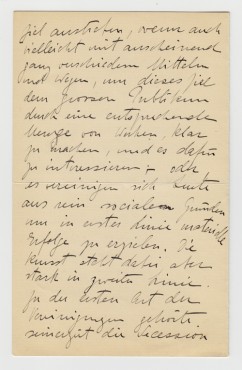 Ziel anstreben, wenn auch
vielleicht mit anscheinend
ganz verschiedenen Mitteln
und Wegen, um dieses Ziel
dem grossen Publikum
durch eine entsprechende
Menge von Werken, klar
zu machen, und es dafür
zu interessieren, oder
es vereinigen sich Leute
aus rein socialen Gründen
um in erster Linie materielle
Erfolge zu erzielen. Die
Kunst steht dafür aber
stark in zweiter Linie.
Zu der ersten Art der
Vereinigungen gehörte
seinerzeit die Secession